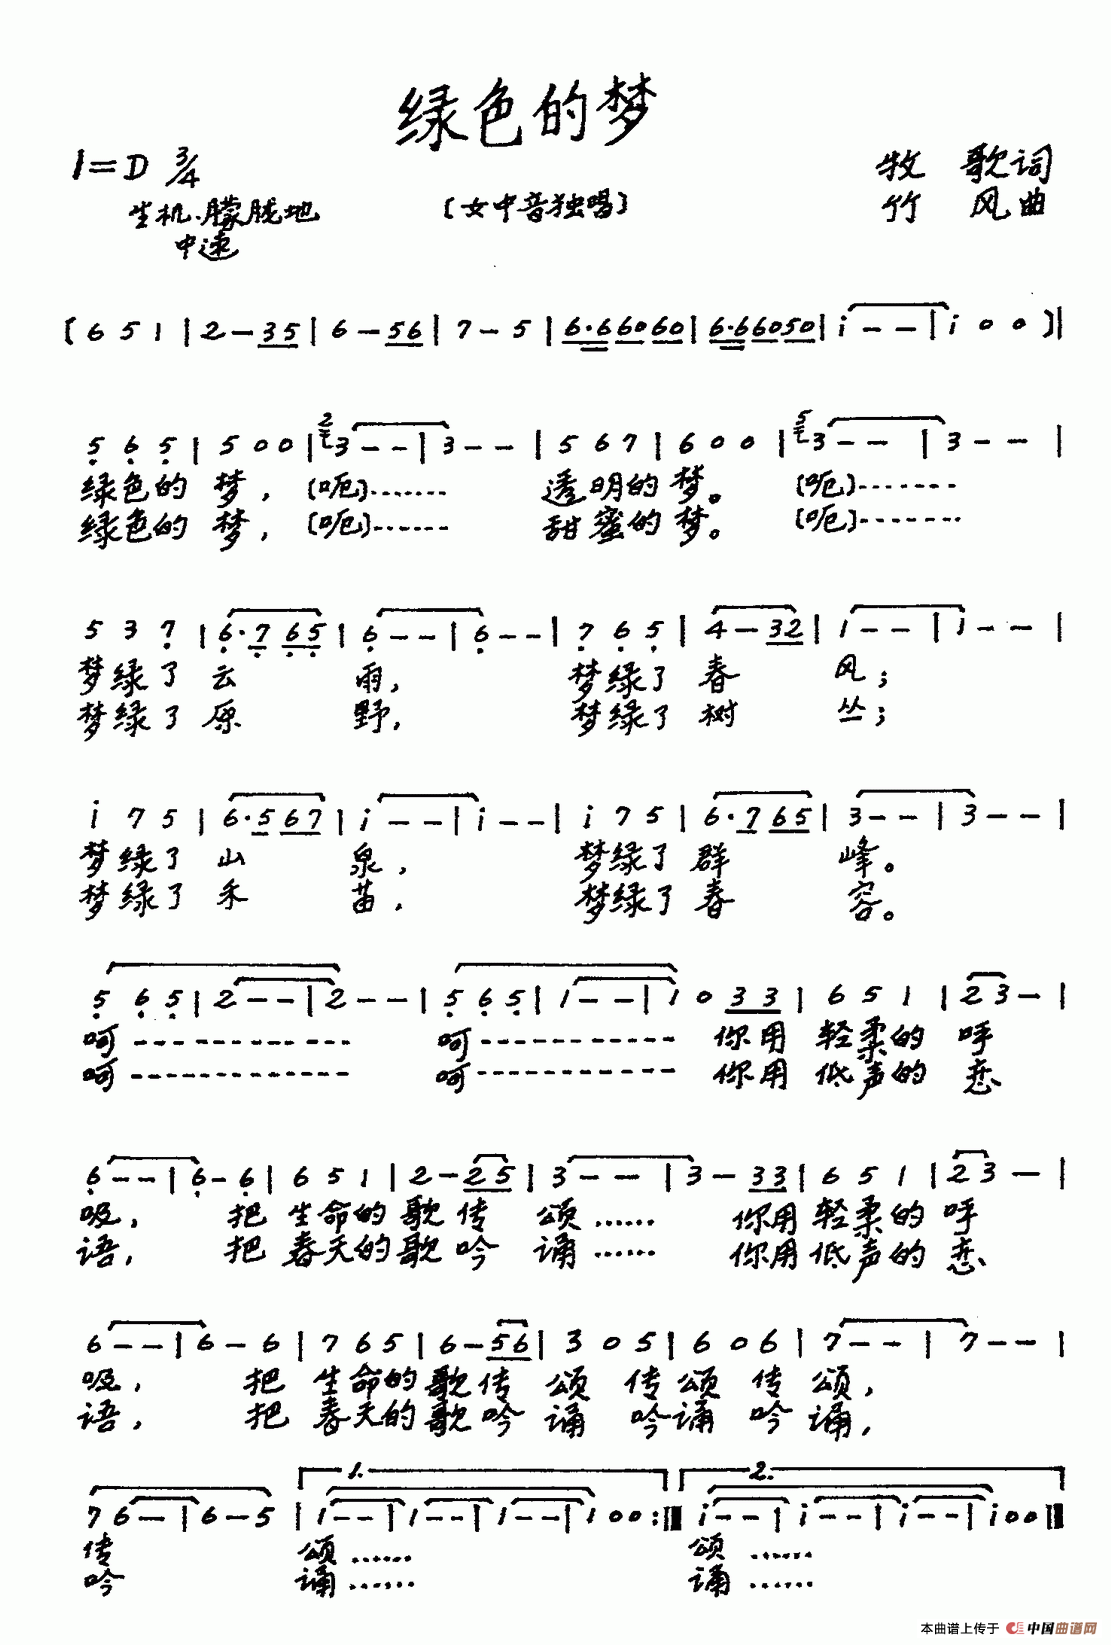 绿色的梦
1=D 3/4
牧 歌词
生机.朦胧地
〔女中音独唱〕
竹 风曲
中速
〔6 5 1 | 2 — 3 5 | 6 — 5 6 | 7 — 5 | 6·6 6 0 6 0 | 6·6 6 0 5 0 | i — — | i 0 0 〕|
5 6 5 | 5 0 0 | 2 3 — — | 3 — — | 5 6 7 | 6 0 0 | 5 3 — — | 3 — — |
绿色的 梦，〔呃〕....... 透明的 梦。〔呃〕........
绿色的 梦，〔呃〕....... 甜蜜的 梦。〔呃〕........
5 3 7 | 6·7 6 5 | 6 — — | 6 — — | 7 6 5 | 4 — 3 2 | 1 — — | 1 — — |
梦绿了 云 雨， 梦绿了 春 风；
梦绿了 原 野， 梦绿了 树 丛；
i 7 5 | 6·5 6 7 | i — — | i — — | i 7 5 | 6·7 6 5 | 3 — — | 3 — — |
梦绿了 山 泉， 梦绿了 群 峰。
梦绿了 禾 苗， 梦绿了 春 容。
5 6 5 | 2 — — | 2 — — | 5 6 5 | 1 — — | 1 0 3 3 | 6 5 1 | 2 3 — |
呵 ------------ 呵 ----------- 你用 轻柔的 呼
呵 ------------ 呵 ----------- 你用 低声的 恋
6 — — | 6 — 6 | 6 5 1 | 2 — 2 5 | 3 — — | 3 — 3 3 | 6 5 1 | 2 3 — |
吸， 把 生命的 歌 传 颂 ...... 你用 轻柔的 呼
语， 把 春天的 歌 吟 诵 ...... 你用 低声的 恋
6 — — | 6 — 6 | 7 6 5 | 6 — 5 6 | 3 0 5 | 6 0 6 | 7 — — | 7 — — |
吸， 把 生命的 歌传 颂 传 颂 传 颂，
语， 把 春天的 歌吟 诵 吟 诵 吟 诵，
1. 2.
7 6 — | 6 — 5 | 1 — — | 1 — — | 1 — — | 1 0 0 :| i — — | i — — | i — — | i 0 0 |
传 颂 ...... 颂 ......
吟 诵 ...... 诵 ......
本曲谱上传于 中国曲谱网